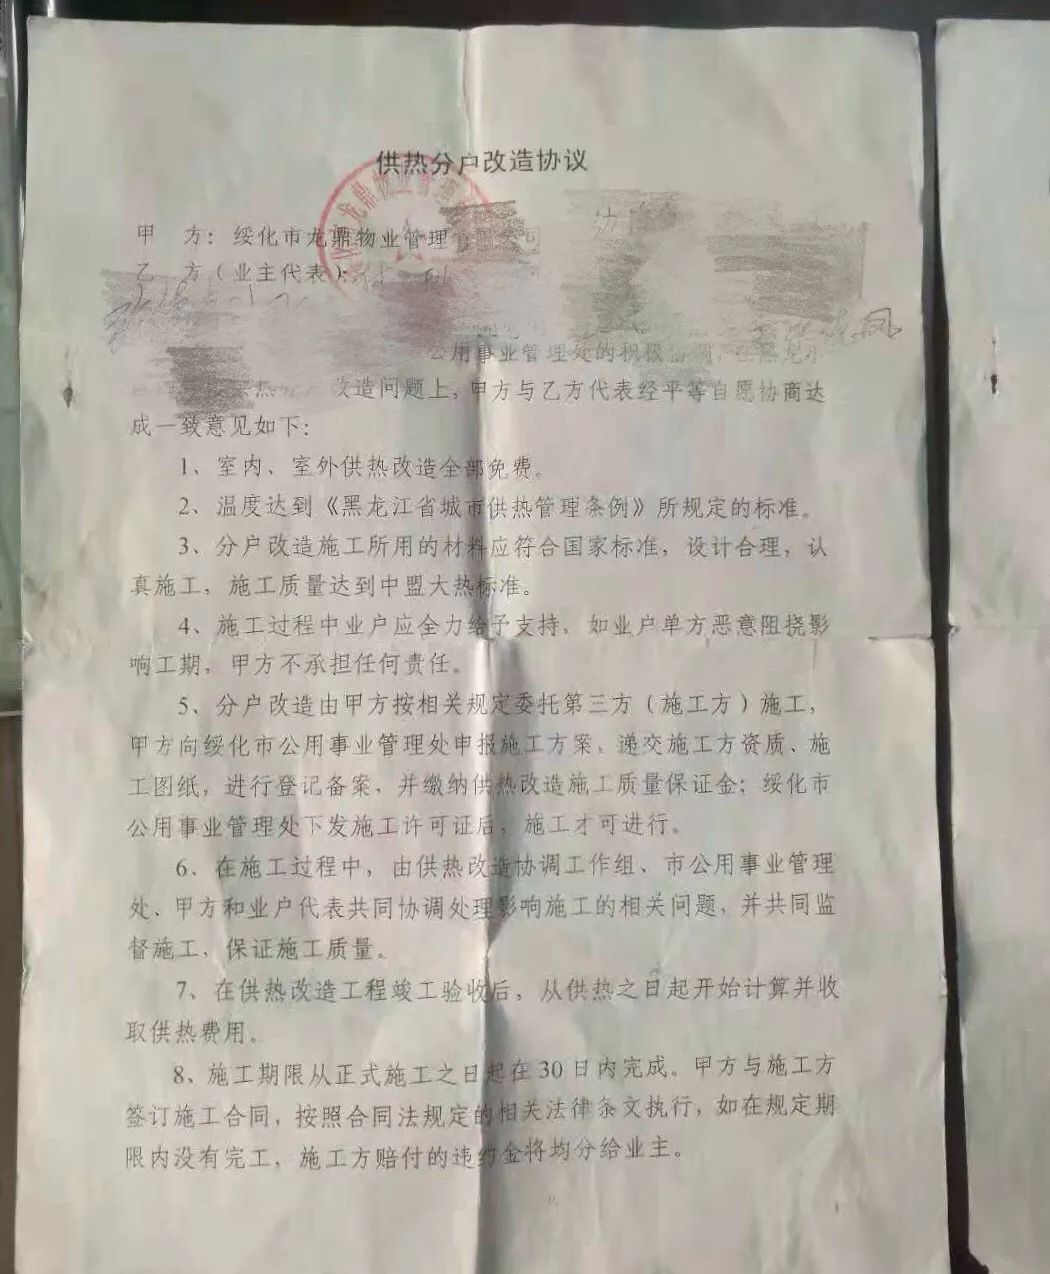 供热分户改造协议
甲 方：绥化市龙鼎物业管理有限公司
乙 方（业主代表）：
凤
公用事业管理处的积极
供热分 改造问题上，甲方与乙方代表经平等自愿协商达
成一致意见如下：
1、室内、室外供热改造全部免费。
2、温度达到《黑龙江省城市供热管理条例》所规定的标准。
3、分户改造施工所用的材料应符合国家标准，设计合理，认
真施工，施工质量达到中盟大热标准。
4、施工过程中业户应全力给予支持，如业户单方恶意阻挠影
响工期，甲方不承担任何责任。
5、分户改造由甲方按相关规定委托第三方（施工方）施工，
甲方向绥化市公用事业管理处申报施工方案，递交施工方资质、施
工图纸，进行登记备案，并缴纳供热改造施工质量保证金；绥化市
公用事业管理处下发施工许可证后，施工才可进行。
6、在施工过程中，由供热改造协调工作组、市公用事业管理
处、甲方和业户代表共同协调处理影响施工的相关问题，并共同监
督施工，保证施工质量。
7、在供热改造工程竣工验收后，从供热之日起开始计算并收
取供热费用。
8、施工期限从正式施工之日起在30日内完成。甲方与施工方
签订施工合同，按照合同法规定的相关法律条文执行，如在规定期
限内没有完工，施工方赔付的违约金将均分给业主。